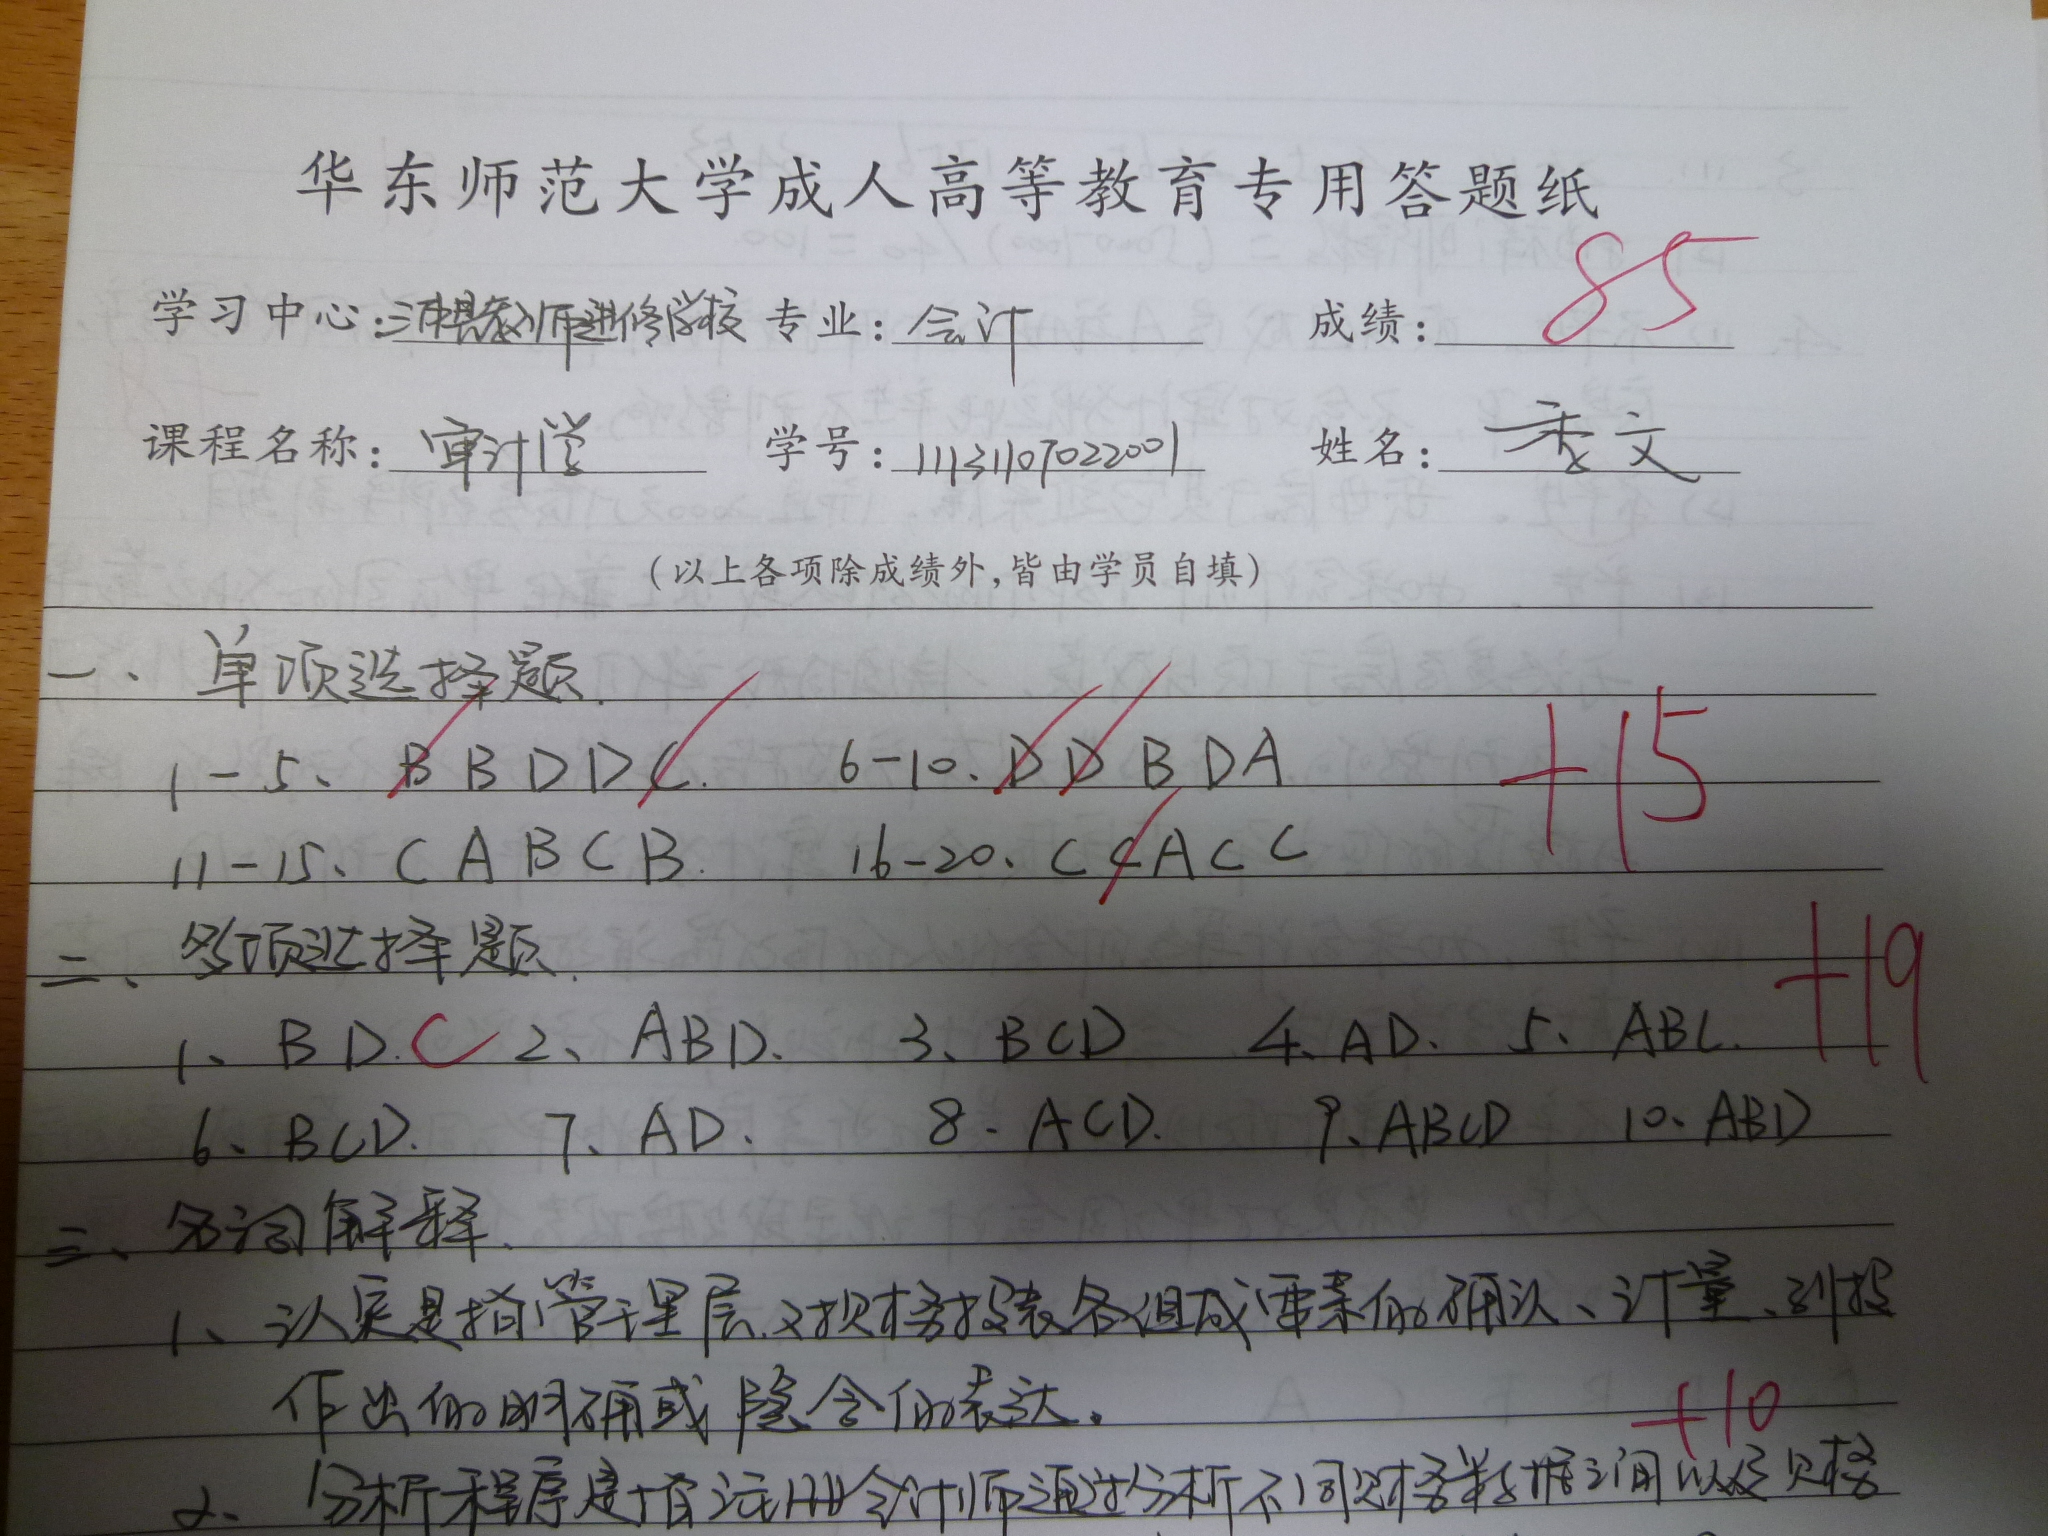 华东师范大学成人高等教育专用答题纸
学习中心:教师进修学校 专业:会计 成绩:85
课程名称:审计学 学号: 姓名:秀文
(以上各项除成绩外,皆由学员自填)
一、单项选择题.
1-5、BBDDC. 6-10、DDBDA +15
11-15、CABCB. 16-20、CCACC
二、多项选择题. +19
1、BD.C 2、ABD. 3、BCD 4、AD. 5、ABC.
6、BCD. 7、AD. 8、ACD. 9、ABCD 10、ABD
三、名词解释.
1、认定是指管理层对财务报表各组成要素的确认、计量、列报
作出的明确或隐含的表达。 +10
2、分析程序是指注册会计师通过分析不同财务数据之间以及财务